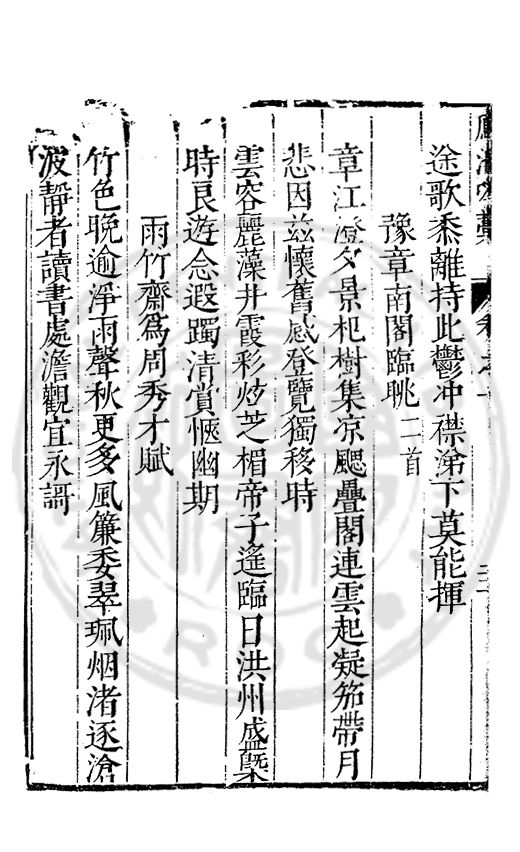 途歌黍離持此鬱冲襟涕下莫能揮
豫章南閣臨眺二首
章江澄夕景杞樹集凉颸疊閣連雲起凝笳帶月
悲因兹懷舊感登覽獨移時
雲容麗藻井霞彩炫芝楣帝子遙臨日洪州盛槩
時良遊念遐躅清賞愜幽期
雨竹齋爲周秀才賦
竹色晚逾淨雨聲秋更多風簾委翠珮烟渚逐滄
波靜者讀書處澹觀宜永謌